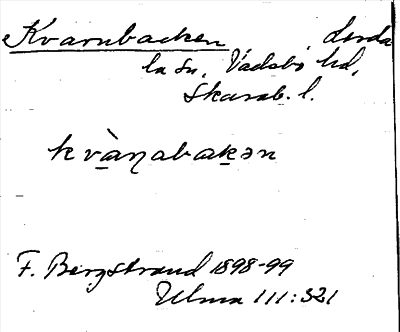 Kvarnbacken, Lerda
la sn, Vadsbo hd,
Skarab. l.
kvàɳabakən
F. Bergstrand 1898-99
Ulma 111:321